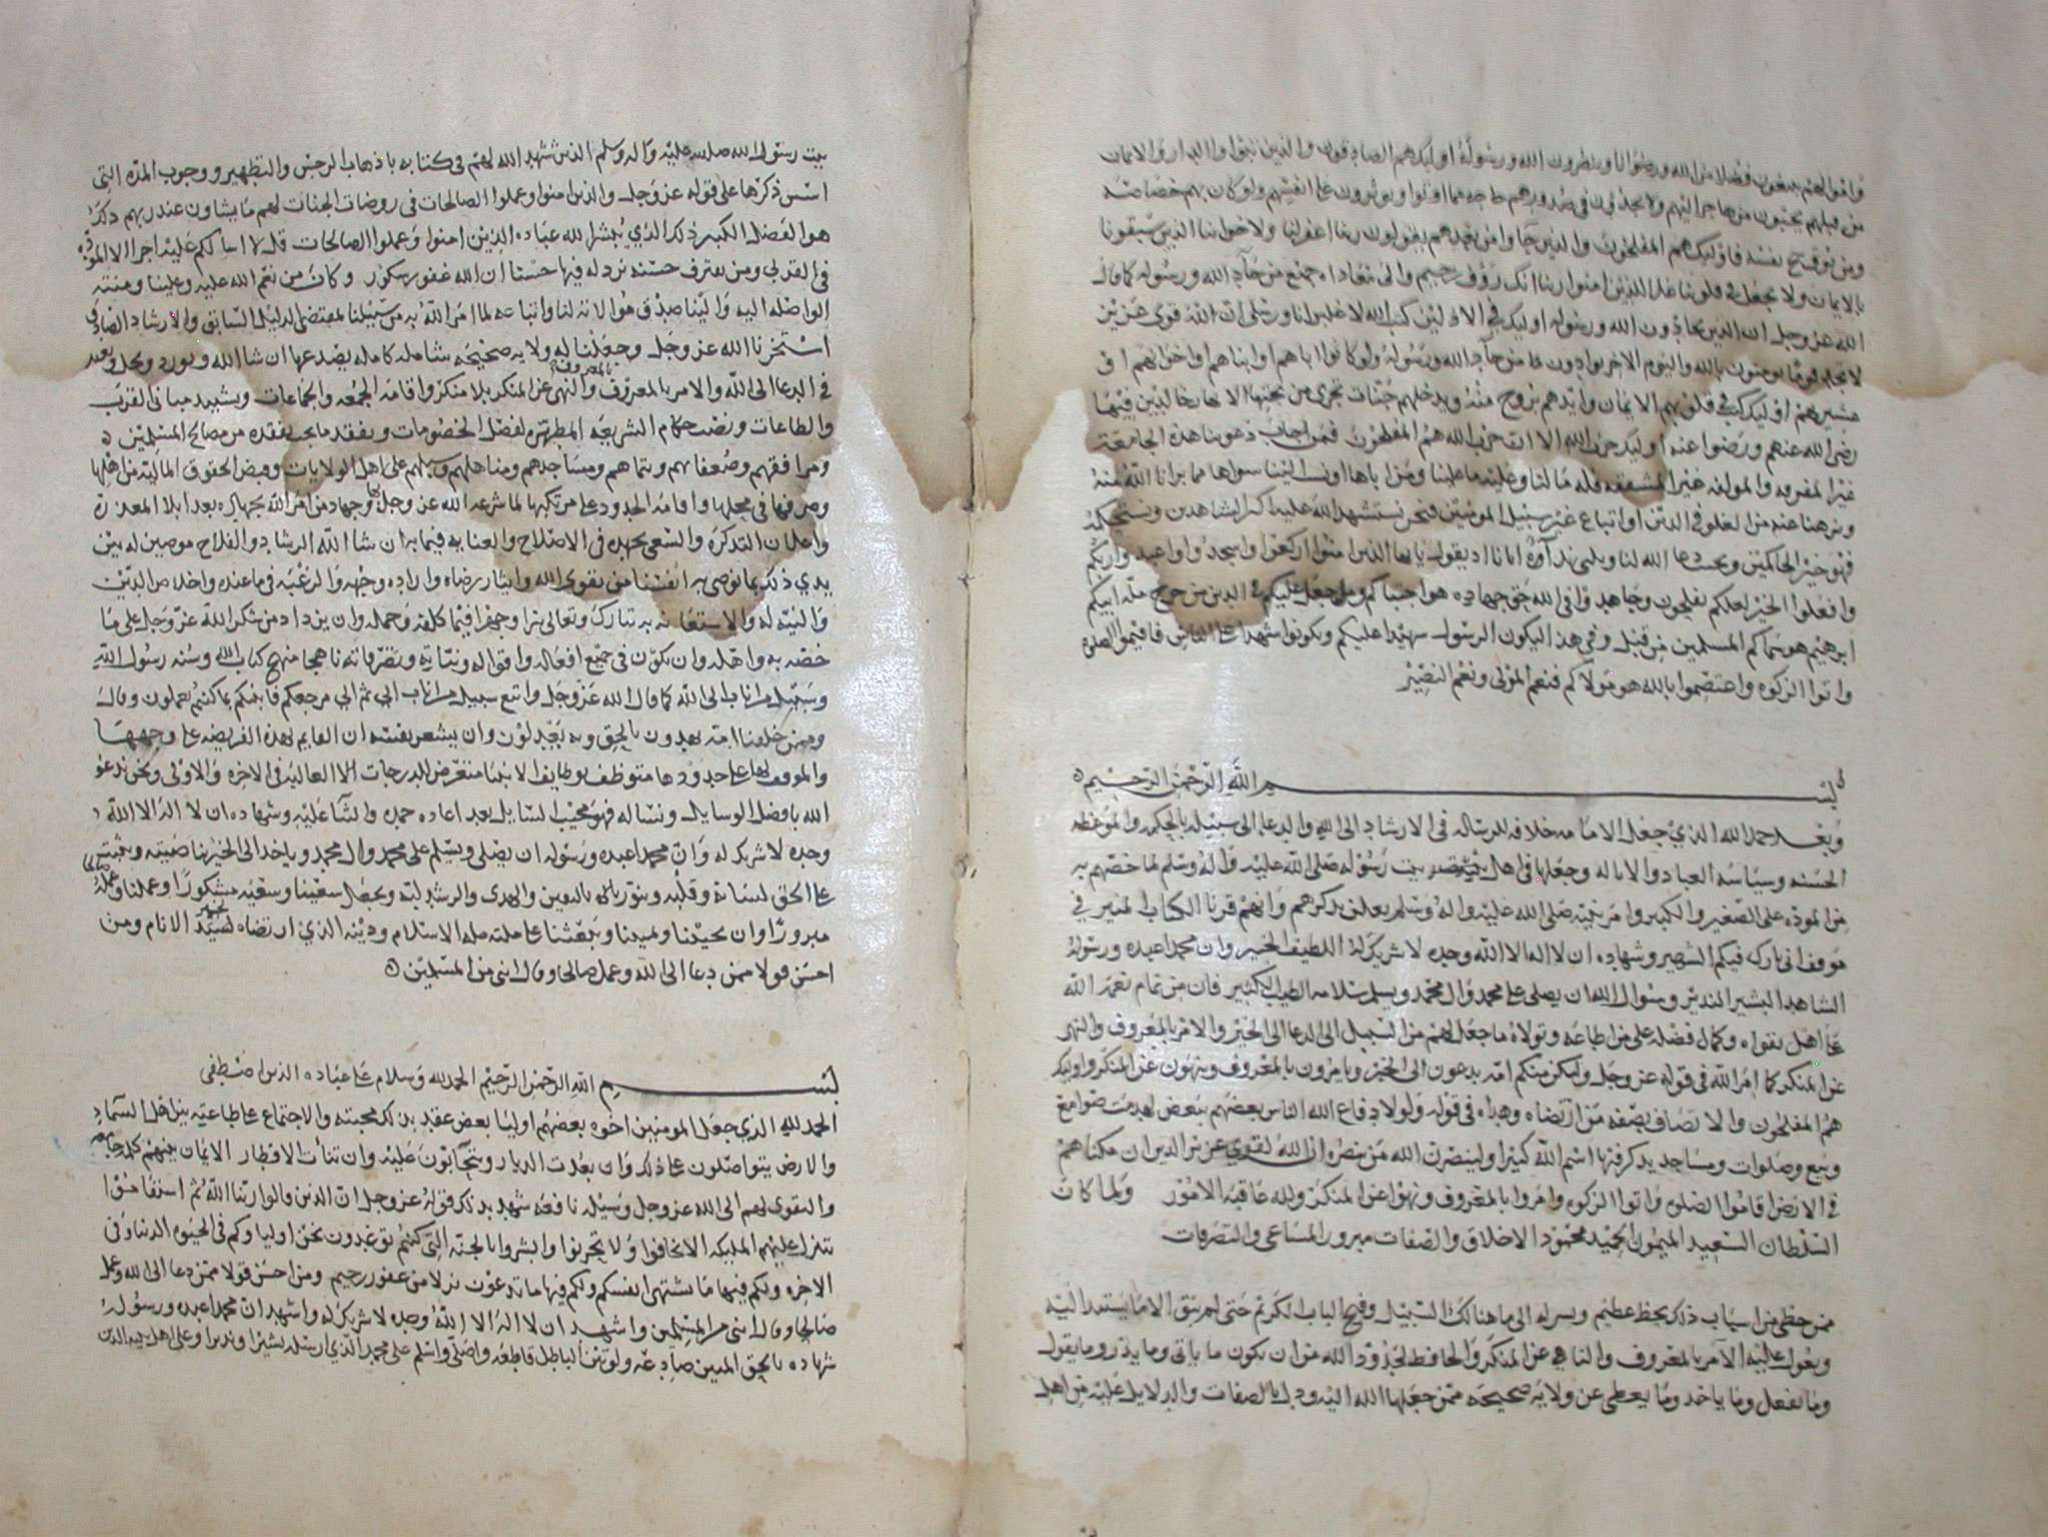 وامو الهم يبتغون فضلا من الله ورضوانا وينظرون الله ورسوله اوليك هم الصادقون والذين تبوا والدار والايمان
من قبلهم يحبون من هاجر اليهم ولا يجدون في صدورهم حاجه مما اوتوا ويوثرون على انفسهم ولو كان بهم خصاصه
ومن يوق شح نفسه فاوليك هم المفلحون والذين جاوا من بعدهم يقولون ربنا اغفر لنا ولاخواننا الذين سبقونا
بالايمان ولا تجعل في قلوبنا غلا للذين امنوا ربنا انك روف رحيم والى معاداه جميع من حاد الله ورسوله كما قال
الله عز وجل ان الذين يحادون الله ورسوله اوليك في الاذلين كتب الله لاغلبن انا ورسلي ان الله قوي عزيز
لا تجد قوما يومنون بالله واليوم الاخر يوادون من حاد الله ورسوله ولو كانوا اباهم او ابناهم او اخوانهم او
عشيرتهم اوليك كتب في قلوبهم الايمان وايدهم بروح منه ويدخلهم جنات تجري من تحتها الانهار خالدين فيها
رضي الله عنهم ورضوا عنه اوليك حزب الله الا ان حزب الله هم المفلحون فمن اجاب دعوتنا هذه الجامعة
غير المفرقه والمولفه غير المشققه فله ما لنا وعليه ما علينا ومن اباها ونسب الينا سواها مما برانا الله منه
ونزهنا عنه من الغلو في الدين او اتباع غير سبيل المومنين فنحن نستشهد الله عليه اكبر الشاهدين ونستحكمه
فهو خير الحاكمين الله لنا يقول يايها الذين امنوا اركعوا واسجدوا واعبدوا ربكم
وافعلوا الخير لعلكم تفلحون وجاهدوا في الله حق جهاده هو اجتباكم وما جعل عليكم في الدين من حرج مله ابيكم
ابرهيم هو سماكم المسلمين من قبل وفي هذا ليكون الرسول شهيدا عليكم وتكونوا شهدا على الناس فاقيموا الصلوة
واتوا الزكوه واعتصموا بالله هو مولاكم فنعم المولى ونعم النصير
بسم الله الرحمن الرحيم
وبعد حمد الله الذي جعل الامامه خلافه للرساله في الارشاد الى الله والدعا الى سبيله بالحكمه والموعظه
الحسنه وسياسه العباد والاياله وجعلها في اهل بيت رسوله صلى الله عليه واله وسلم لما خصهم به
من المودة على الصغير والكبير وامر نبيه صلى الله عليه واله وسلم بذكرهم وانهم قرنا الكتاب المنير في
موقف اني تارك فيكم الشهير وشهاده ان لا اله الا الله وحده لا شريك له اللطيف الخبير وان محمدا عبده ورسوله
الشاهد البشير النذير وسوال الله ان يصلي على محمد وال محمد ويسلم سلامه الطيب الكثير فان من تمام نعمة الله
على اهل تقواه وكمال فضله على من اطاعه وتولاه ما جعل لهم من السبيل الى الدعا الى الخير والامر بالمعروف والنهي
عن المنكر كما امر الله في قوله عز وجل ولتكن منكم امه يدعون الى الخير ويامرون بالمعروف وينهون عن المنكر واوليك
هم المفلحون والاتصاف بصفه من ارتضاه وهداه في قوله ولولا دفاع الله الناس بعضهم ببعض لهدمت صوامع
وبيع وصلوات ومساجد يذكر فيها اسم الله كثيرا ولينصرن الله من ينصره ان الله لقوي عزيز الذين ان مكناهم
في الارض اقاموا الصلوه واتوا الزكوه وامروا بالمعروف ونهوا عن المنكر ولله عاقبه الامور ولما كان
السلطان السعيد الميمون الحميد محمود الاخلاق والصفات مبرور المساعي والتصرفات
ممن حظي من اسباب ذلك بحظ عظيم ويسر له الى ما هنالك السبيل وفتح الباب الكريم حتى لم يبق الا ما يستند اليه
ويعول عليه الامر بالمعروف والناهي عن المنكر والحافظ لحدود الله من ان يكون ما ياتي وما يذر وما يقول
وما يفعل وما ياخذ وما يعطي عن ولايه صحيحه ممن جعلها الله اليه ودل بالصفات والدلايل عليه من اهل
بيت رسول الله صلى الله عليه واله وسلم الذين شهد الله لهم في كتابه باذهاب الرجس والتطهير ووجوب المودة التي
اسس ذكرها على قوله عز وجل والذين امنوا وعملوا الصالحات في روضات الجنات لهم ما يشاون عند ربهم ذلك
هو الفضل الكبير ذلك الذي يبشر الله عباده الذين امنوا وعملوا الصالحات قل لا اسالكم عليه اجرا الا المودة
في القربى ومن يقترف حسنه نزد له فيها حسنا ان الله غفور شكور وكان من نعم الله عليه وعلينا ومنته
الواصله اليه والينا صدق موالاته لنا واتباعه لما امر الله به من سبيلنا بمقتضى الدليل السابق والارشاد الصادق
استخرنا الله عز وجل وجعلنا له ولايه صحيحه شامله كامله يصدع بها ان شا الله ويورد ويحل ويعقد
في الدعا الى الله والامر بالمعروف بالمعروف والنهي عن المنكر بلا منكر واقامه الجمعه والجماعات وتشييد مباني القرب
والطاعات ونصب حكام الشريعه المطهره لفصل الخصومات وتفقد ما يجب تفقده من مصالح المسلمين
ومرافقهم وضعفايهم ويتاماهم ومساجدهم ومناهلهم وسبلهم على اهل الولايات وقبض الحقوق الماليه من اهلها
وصرفها في محلها واقامه الحدود على مرتكبها لما شرعه الله عز وجل وجهاد من امر الله بجهاده بعد ابلا المعذره
واعلان التذكره والسعي بجهده في الاصلاح والعنايه فيما يراه ان شا الله الرشاد والفلاح موصين له بين
يدي ذلك بما نوصي به انفسنا من تقوى الله وايثار رضاه واراده وجهه والرغبه فيما عنده واخلاص الدين
والنيه له والاستعانه به تبارك وتعالى سرا وجهرا فيما كلفه وحمله وان يزداد من شكر الله عز وجل على ما
خصه به واهله وان يكون في جميع افعاله واقواله ونياته وتصرفاته ناهجا منهج كتاب الله وسنه رسول الله
وسبيل من اناب الى الله كما قال الله عز وجل واتبع سبيل من اناب الي ثم الي مرجعكم فانبيكم بما كنتم تعملون وقال
وممن خلقنا امه يهدون بالحق وبه يعدلون وان يشعر نفسه ان القايم بهذه الفريضه على وجهها
والموقف لها على حدودها متوظف بوظايف الانبيا متعرض للدرجات العاليه في الاخره والاولى ونحن ندعو
الله بافضل الوسايل ونساله فهو مجيب السايل بعد اعاده حمده والثنا عليه وشهاده ان لا اله الا الله
وحده لا شريك له وان محمدا عبده ورسوله ان يصلي ويسلم على محمد وال محمد وياخذ الى الخير بناصيته ويثبت
على الحق لسانه وقلبه وينور باليقين والهدى والرشد لبه ويجعل سعينا وسعيه مشكورا وعملنا وعمله
مبرورا وان يحيينا ويميتنا ويبعثنا على ملته مله الاسلام ودينه الذي ارتضاه لسيد الانام ومن
احسن قولا ممن دعا الى الله وعمل صالحا وقال انني من المسلمين
بسم الله الرحمن الرحيم الحمد لله وسلام على عباده الذين اصطفى
الحمد لله الذي جعل المومنين اخوه بعضهم اوليا بعض محبته والاجتماع على طاعته بين اهل السماء
والارض يتواصلون على ذلك وان بعدت الديار ويتحابون عليه وان تناءت الاقطار الايمان بينهم كلمة جامعه
والتقوى لهم الى الله عز وجل وسيله نافعه شهد بذلك قوله عز وجل ان الذين قالوا ربنا الله ثم استقاموا
تتنزل عليهم المليكه الا تخافوا ولا تحزنوا وابشروا بالجنه التي كنتم توعدون نحن اولياوكم في الحيوه الدنيا وفي
الاخره ولكم فيها ما تشتهي انفسكم ولكم فيها ما تدعون نزلا من غفور رحيم ومن احسن قولا ممن دعا الى الله وعمل
صالحا وقال انني من المسلمين واشهد ان لا اله الا الله وحده لا شريك له واشهد ان محمدا عبده ورسوله
شهاده بالحق المبين صادعه ولقرين الباطل قاطعه واصلي واسلم على محمد الذي ارسله بشيرا ونذيرا وعلى اهل بيته الذين